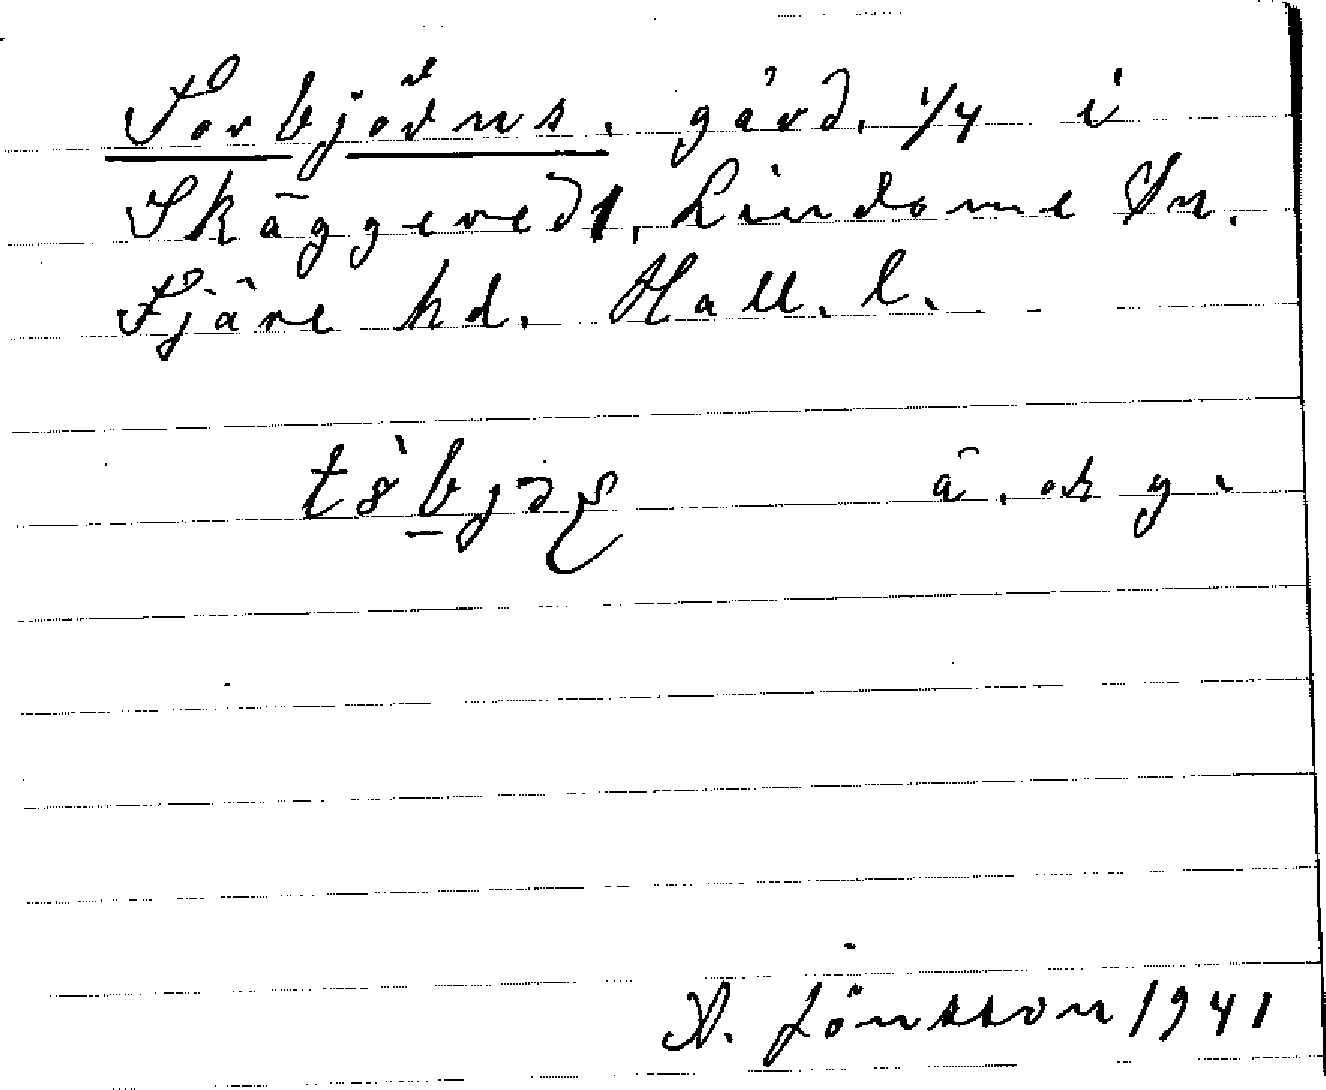 Torbjörns. gård. 1/4 i
Skäggered 1, Lindome Sn.
Fjäre hd. Hall. l.
ä. ok g.
A. Jönsson 1941